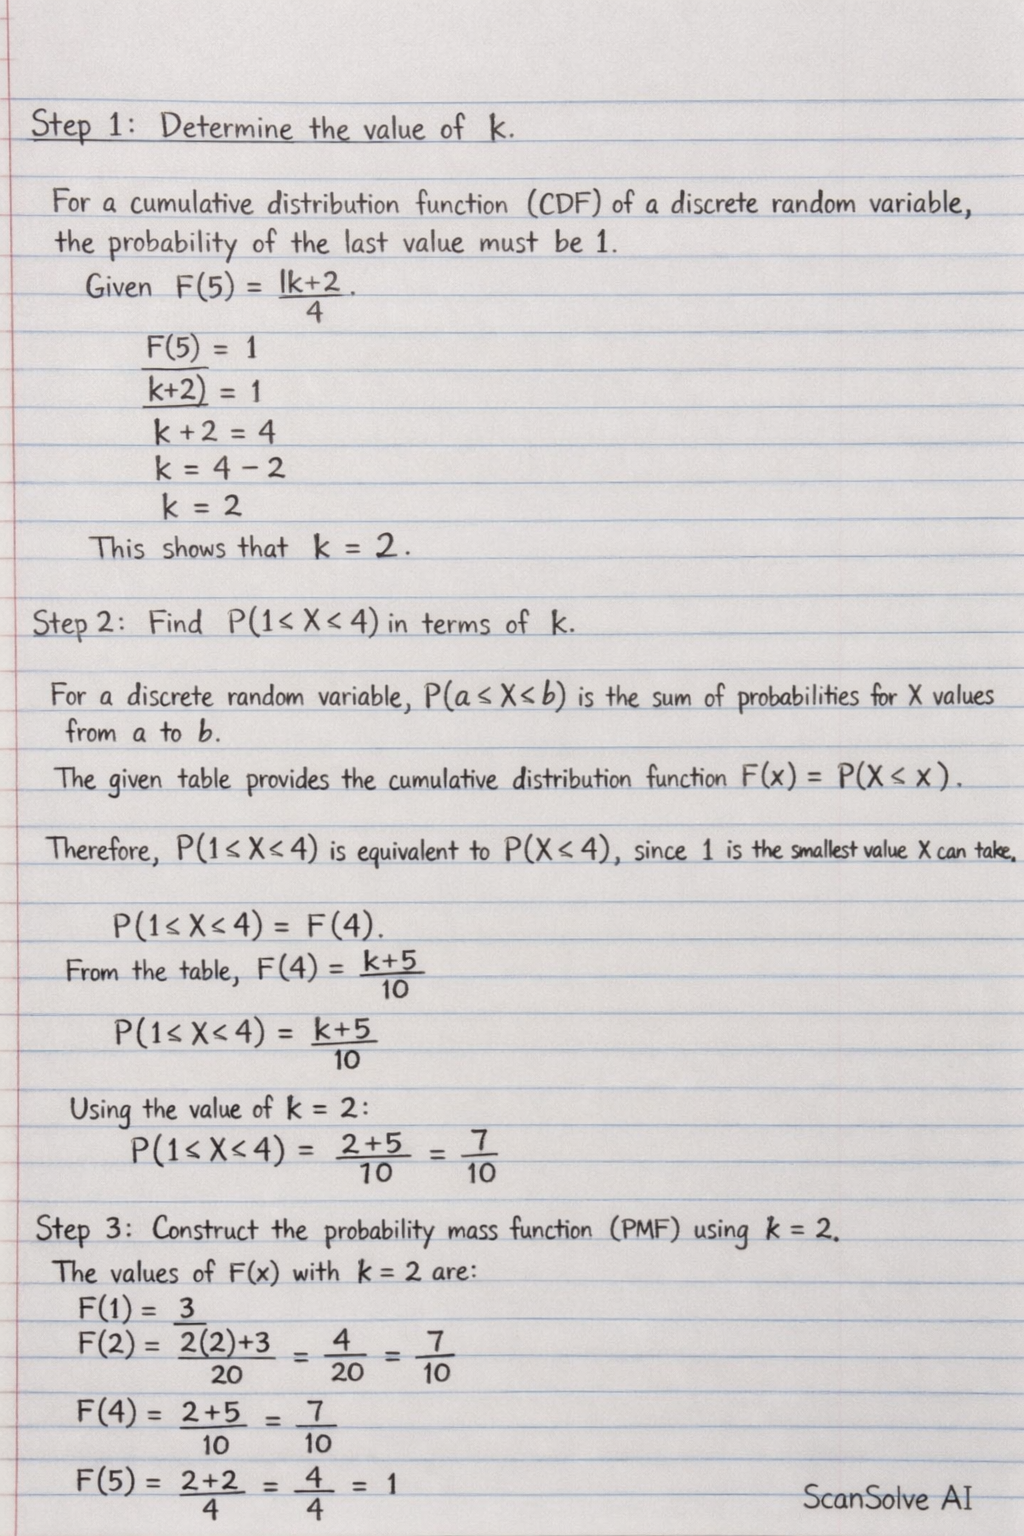 Step 1: Determine the value of k.
For a cumulative distribution function (CDF) of a discrete random variable,
the probability of the last value must be 1.
Given F(5) = |k+2 / 4.
F(5) = 1
k+2) = 1
k + 2 = 4
k = 4 − 2
k = 2
This shows that k = 2.
Step 2: Find P(1 < X < 4) in terms of k.
For a discrete random variable, P(a ≤ X ≤ b) is the sum of probabilities for X values
from a to b.
The given table provides the cumulative distribution function F(x) = P(X ≤ x).
Therefore, P(1 ≤ X < 4) is equivalent to P(X ≤ 4), since 1 is the smallest value X can take.
P(1 ≤ X < 4) = F(4).
From the table, F(4) = k+5 / 10
P(1 ≤ X < 4) = k+5 / 10
Using the value of k = 2:
P(1 ≤ X < 4) = 2+5 / 10 = 7 / 10
Step 3: Construct the probability mass function (PMF) using k = 2.
The values of F(x) with k = 2 are:
F(1) = 3
F(2) = 2(2)+3 / 20 = 4 / 20 = 7 / 10
F(4) = 2+5 / 10 = 7 / 10
F(5) = 2+2 / 4 = 4 / 4 = 1
ScanSolve AI